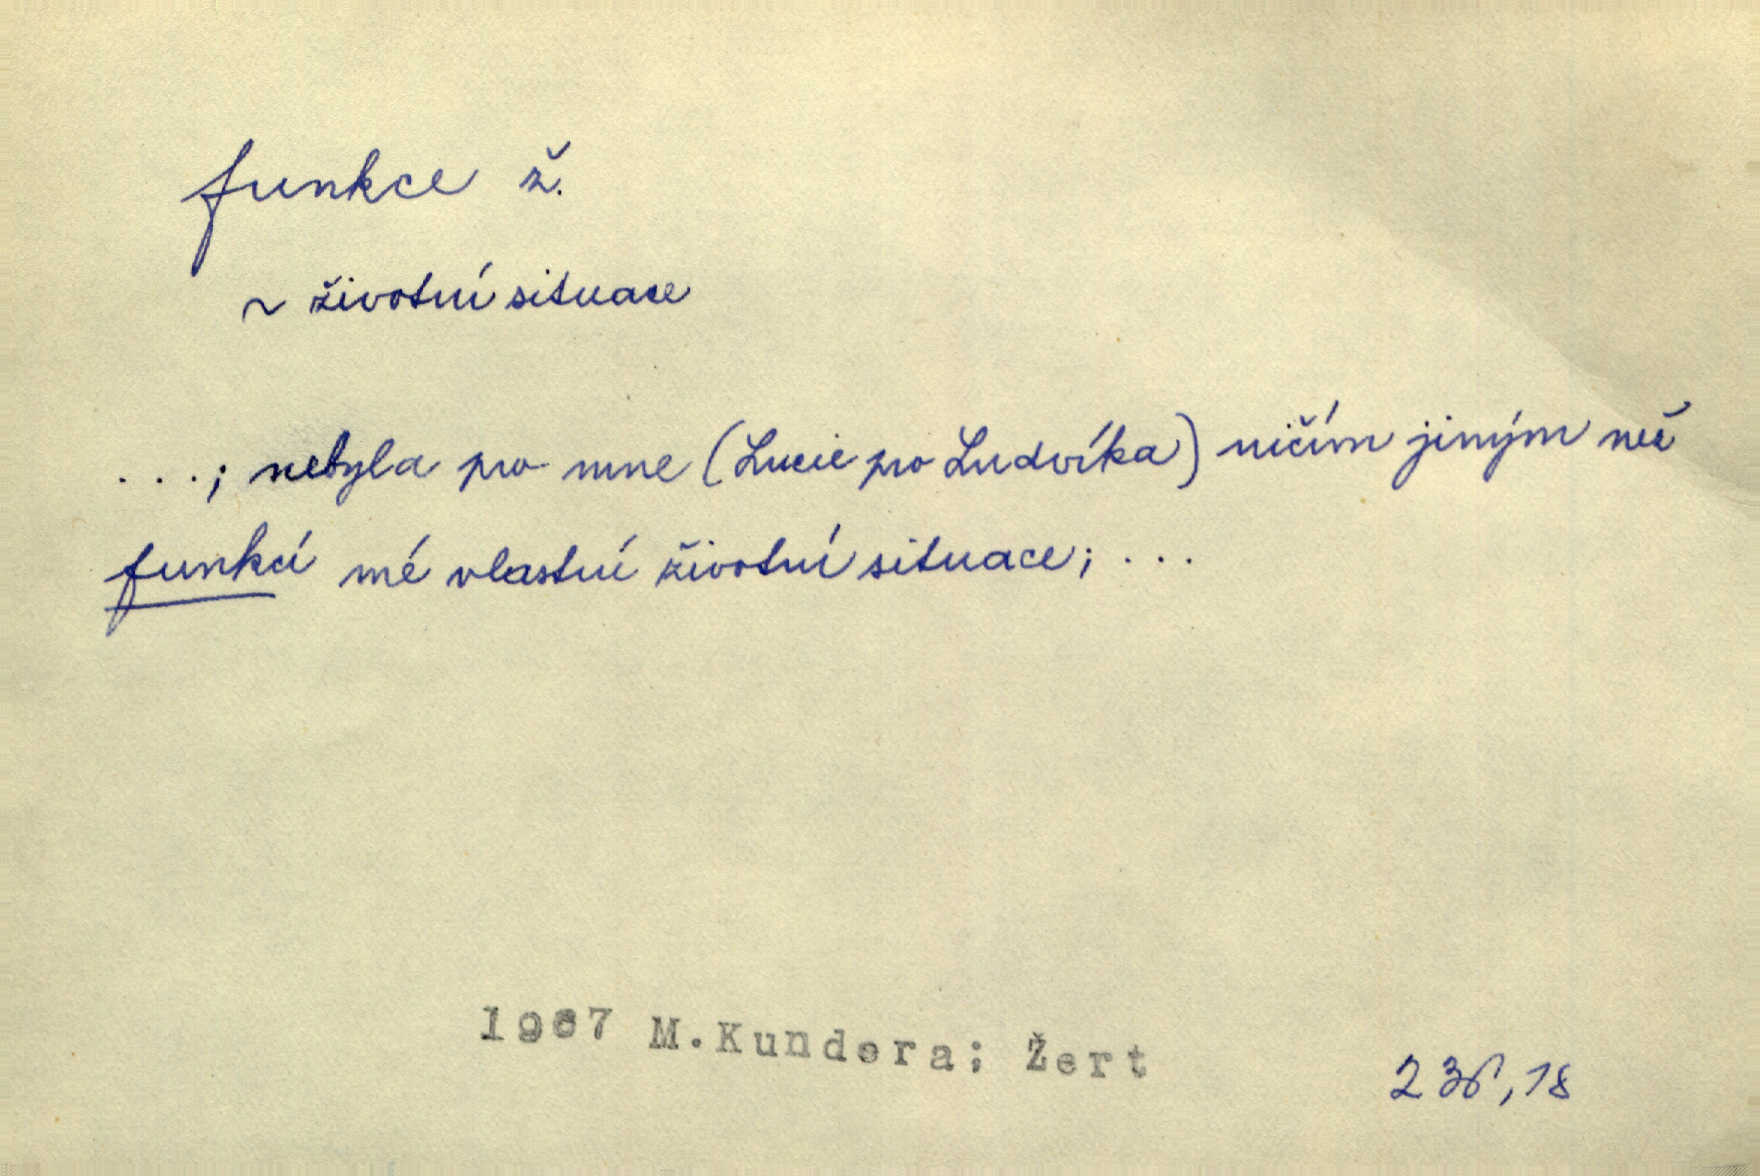 funkce ž.
~ životní situace
...; nebyla pro mne (Lucie pro Ludvíka) ničím jiným než
funkcí mé vlastní životní situace; ...
1967 M.Kundera; Žert
236,18